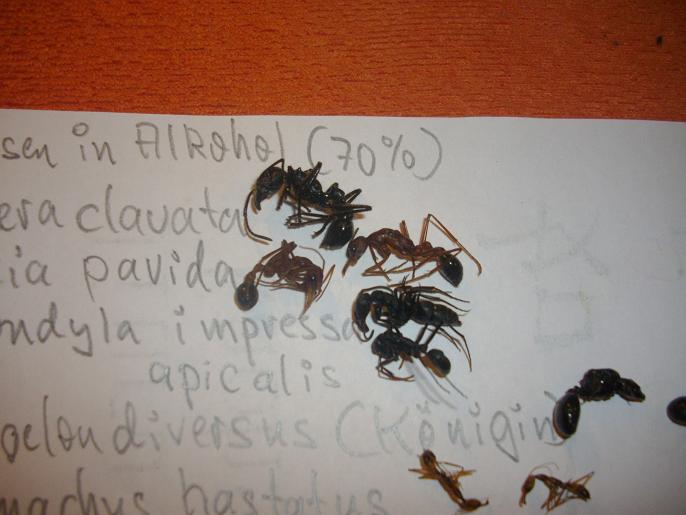 sen in Alkohol (70%)
era clavata
ia pavida
ndyla impressa
apicalis
oelon diversus (Königin)
machus hastatus